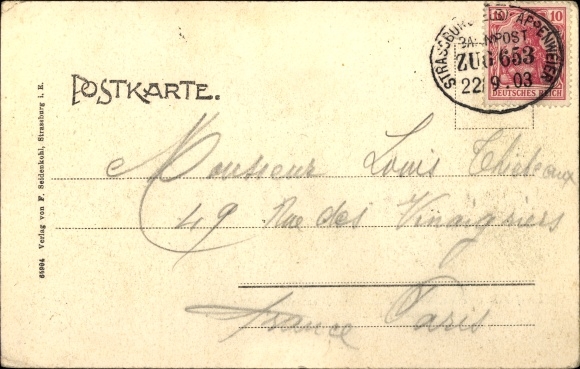 10 10
STRASSBURG (ELS) APPENWEIER
BAHNPOST
ZUG 653
22 9.03
DEUTSCHES REICH
POSTKARTE.
Monsieur Louis
49 Rue des Vinaigriers
France Paris
65984 Verlag von F. Seidenkohl, Strassburg i. E.